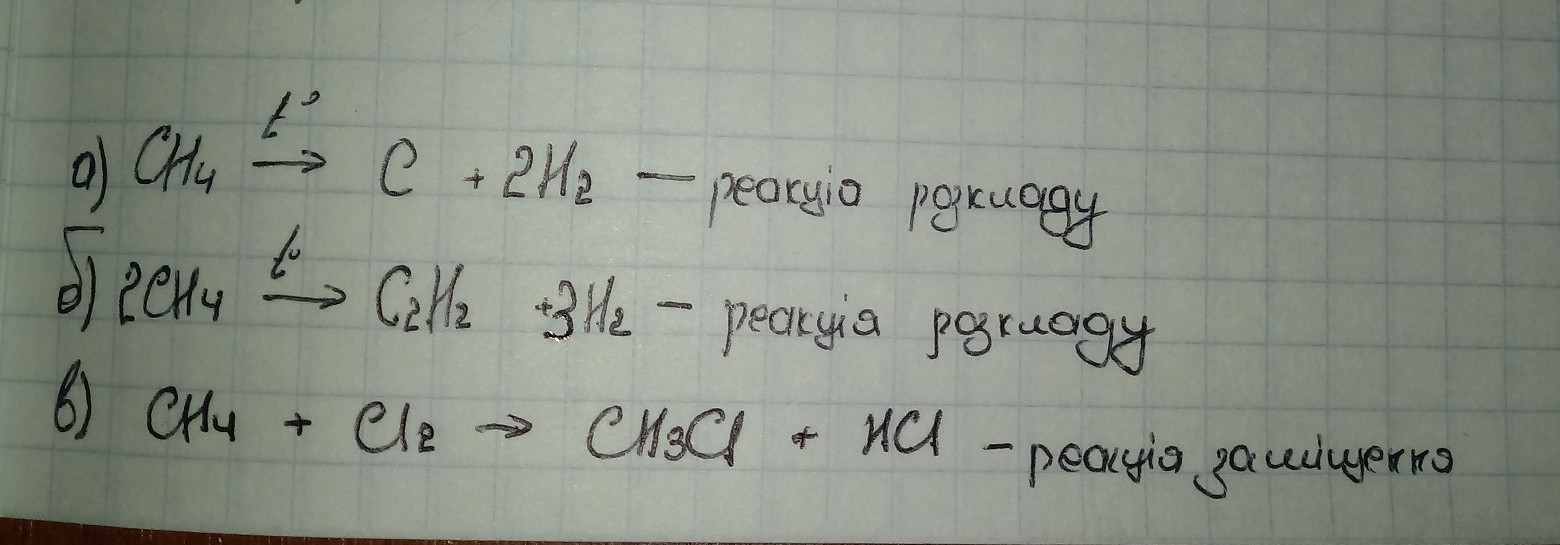 а) CH₄ —t°→ C + 2H₂ — реакція розкладу
б) 2CH₄ —t°→ C₂H₂ +3H₂ — реакція розкладу
в) CH₄ + Cl₂ → CH₃Cl + HCl - реакція заміщення